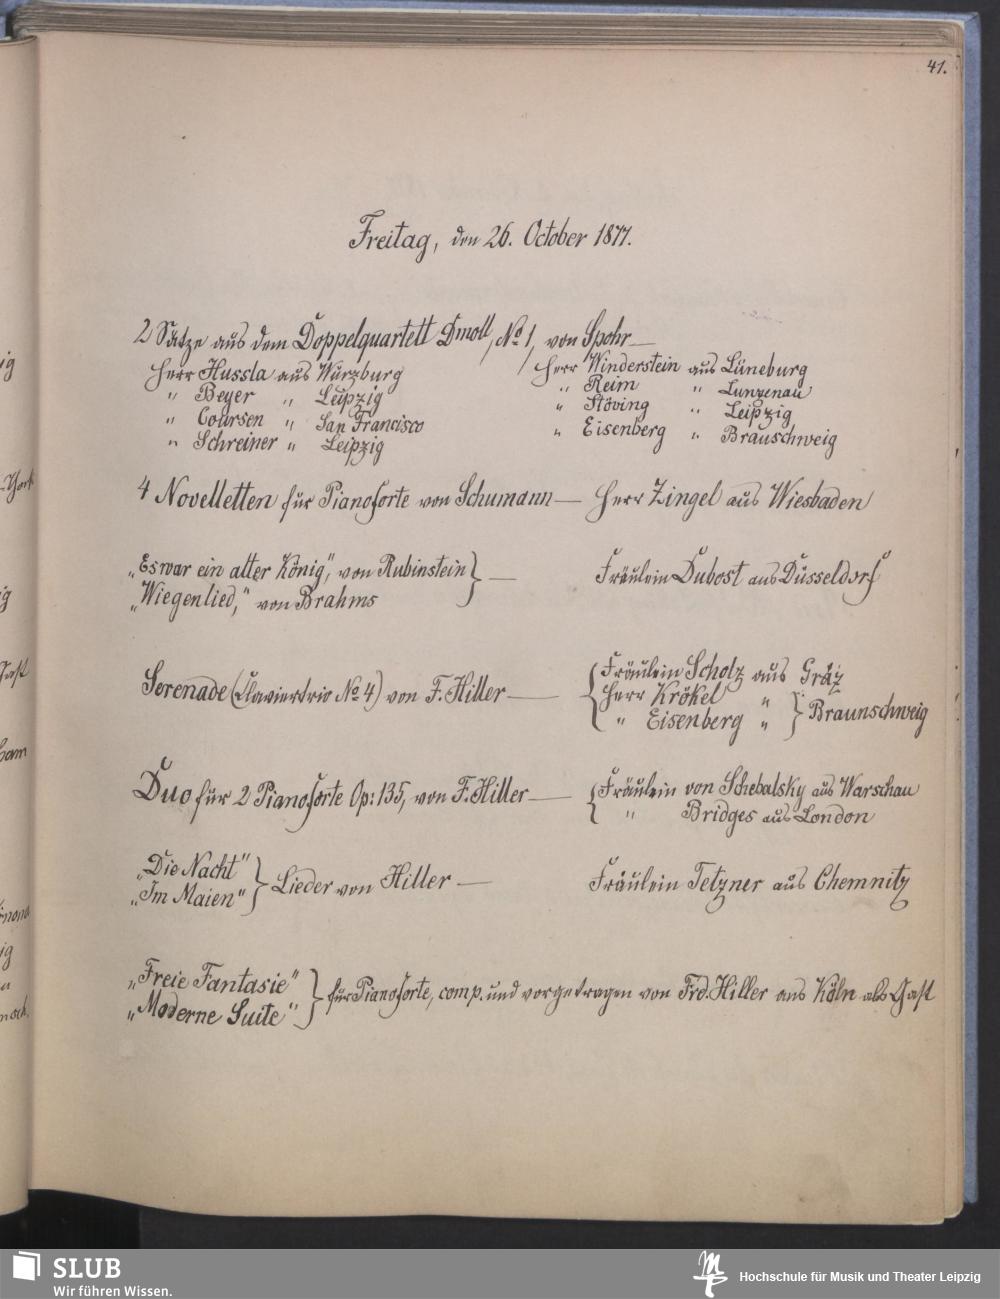 41.
Freitag, den 26. October 1877.
2 Sätze aus dem Doppelquartett Dmoll, No 1, von Spohr —
Herr Hussla aus Würzburg
" Beyer " Leipzig
" Coursen " San Francisco
" Schreiner " Leipzig
Herr Winderstein aus Lüneburg
" Reim " Lunzenau
" Stöving " Leipzig
" Eisenberg " Brauschweig
4 Novelletten für Pianoforte von Schumann — Herr Zingel aus Wiesbaden
„Es war ein alter König", von Rubinstein
„Wiegenlied," von Brahms — Fräulein Dubost aus Düsseldorf
Serenade (Claviertrio No 4) von F. Hiller —
Fräulein Scholz aus Gräz
Herr Krökel "
" Eisenberg " Braunschweig
Duo für 2 Pianoforte Op: 135, von F. Hiller —
Fräulein von Schebalsky aus Warschau
" Bridges aus London
„Die Nacht"
„Im Maien" Lieder von Hiller — Fräulein Tetzner aus Chemnitz
„Freie Fantasie"
„Moderne Suite" für Pianoforte, comp. und vorgetragen von Frd. Hiller aus Köln als Gast
SLUB
Wir führen Wissen.
Hochschule für Musik und Theater Leipzig